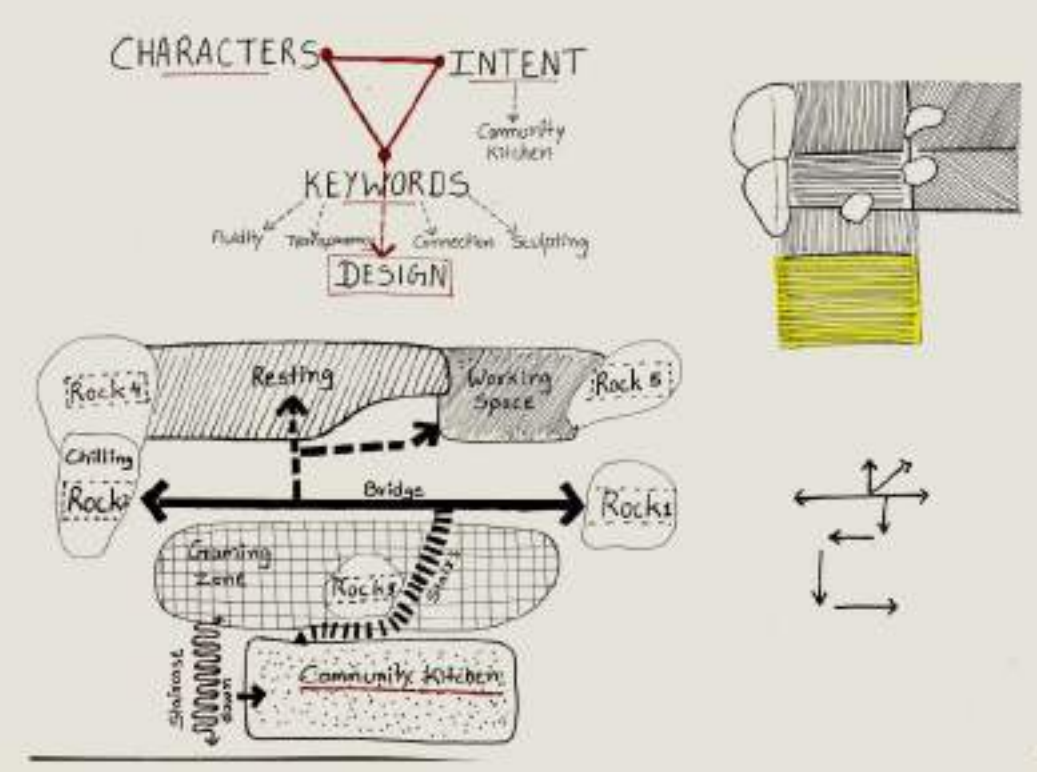 CHARACTERS
INTENT
Community
Kitchen
KEYWORDS
Fluidity
Transparency
Connection
Sculpting
DESIGN
Rock 4
Resting
Working
Space
Rock 5
Chilling
Rock2
Bridge
Rock1
Gaming
Zone
Rock3
Stairs
Staircase
down
Community Kitchen